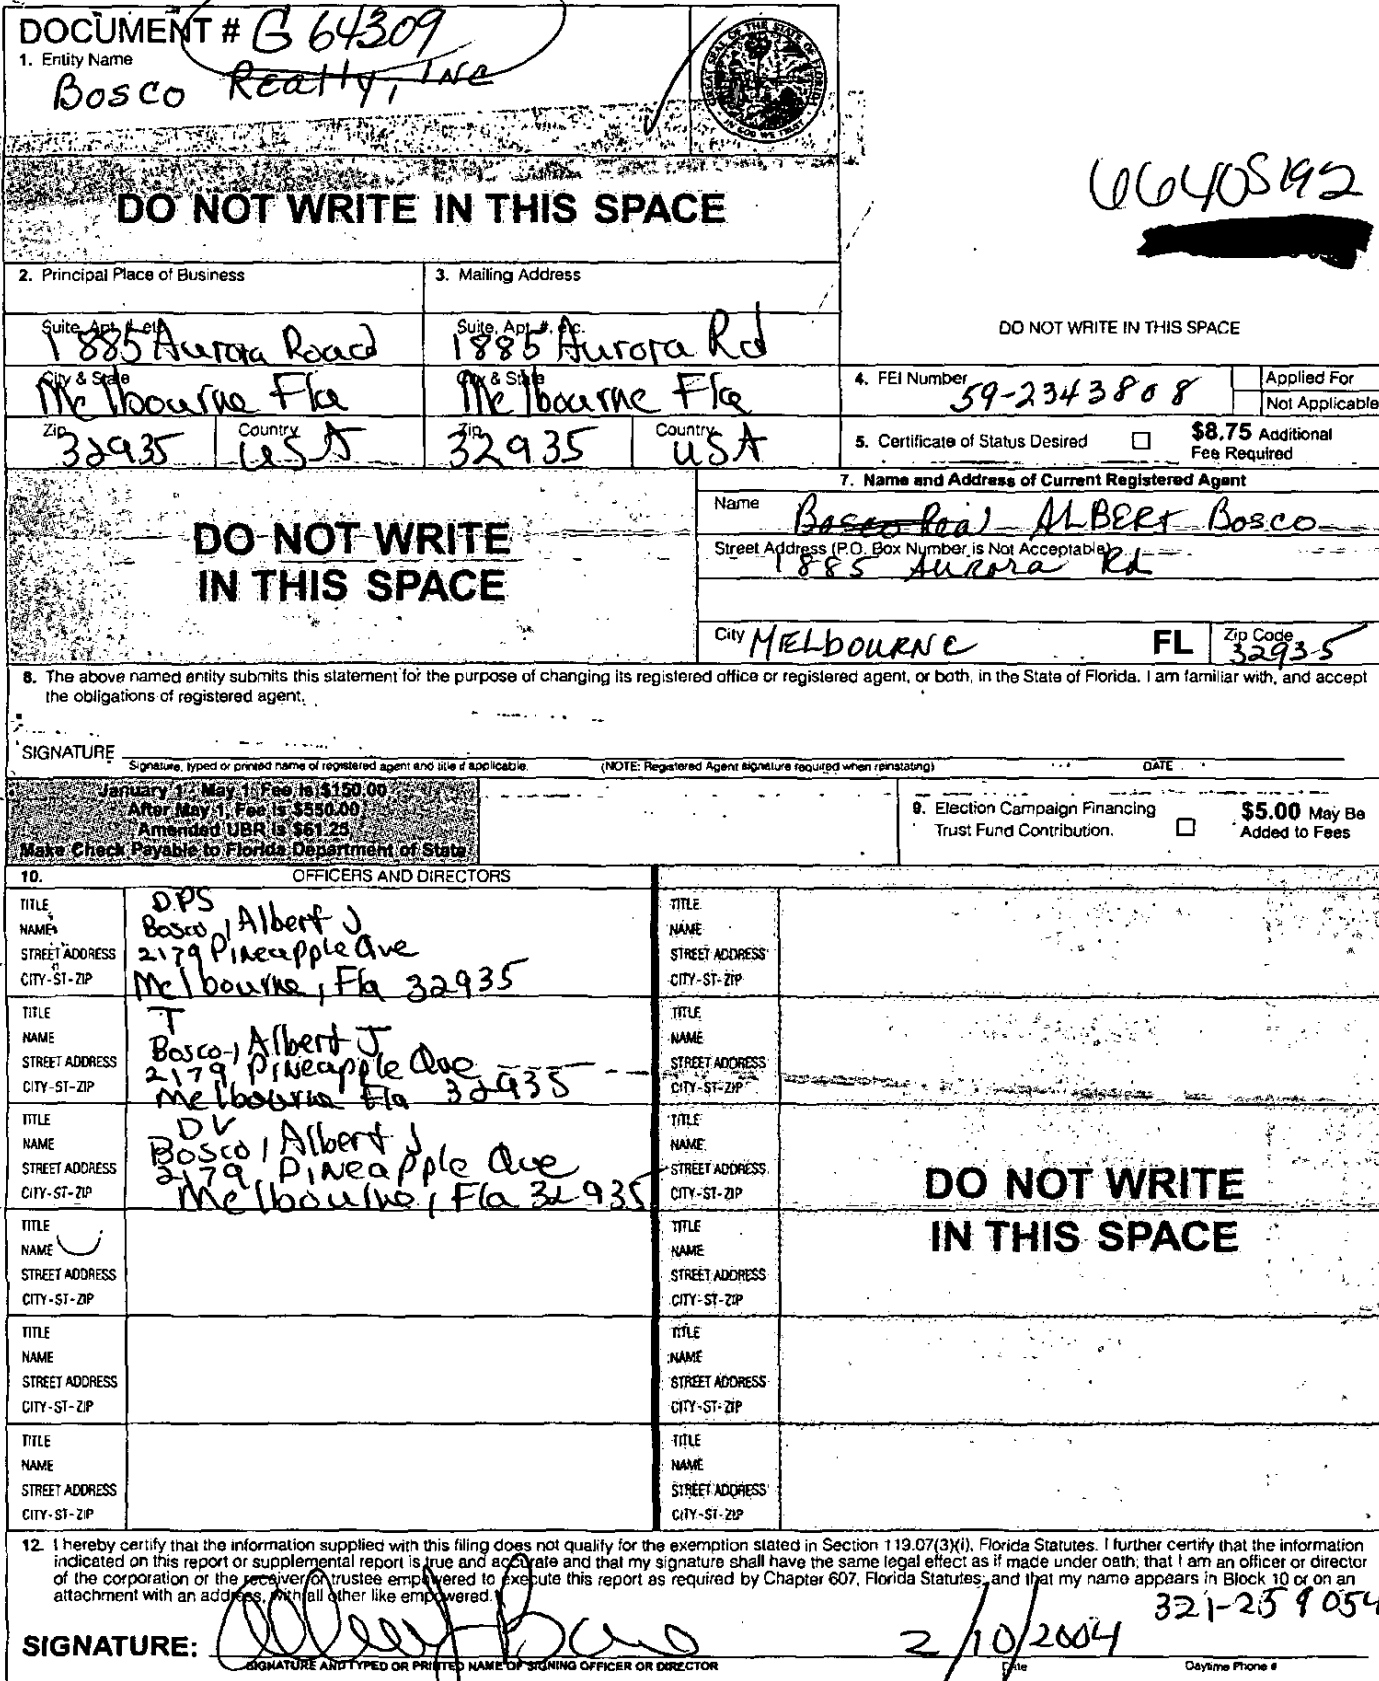 DOCUMENT # G 64309
1. Entity Name
Bosco Realty, Inc
GREAT SEAL OF THE STATE OF FLORIDA
IN GOD WE TRUST
DO NOT WRITE IN THIS SPACE
66405192
2. Principal Place of Business
3. Mailing Address
DO NOT WRITE IN THIS SPACE
Suite, Apt. #, etc.
1885 Aurora Road
Suite, Apt. #, etc.
1885 Aurora Rd
City & State
Melbourne Fla
City & State
Melbourne Fla
4. FEI Number
59-2343808
Applied For
Not Applicable
Zip
32935
Country
USA
Zip
32935
Country
USA
5. Certificate of Status Desired
$8.75 Additional
Fee Required
DO NOT WRITE
IN THIS SPACE
7. Name and Address of Current Registered Agent
Name
Bosco Real ALBERT Bosco
Street Address (P.O. Box Number is Not Acceptable)
1885 Aurora Rd
City MELbOURNE FL Zip Code 32935
8. The above named entity submits this statement for the purpose of changing its registered office or registered agent, or both, in the State of Florida. I am familiar with, and accept
the obligations of registered agent.
SIGNATURE
Signature, typed or printed name of registered agent and title if applicable.
(NOTE: Registered Agent signature required when reinstating)
DATE
January 1 - May 1, Fee is $150.00
After May 1, Fee is $550.00
Amended UBR is $61.25
Make Check Payable to Florida Department of State
9. Election Campaign Financing
Trust Fund Contribution.
$5.00 May Be
Added to Fees
10. OFFICERS AND DIRECTORS
TITLE DPS
NAME Bosco, Albert J
STREET ADDRESS 2179 Pineapple Ave
CITY-ST-ZIP Melbourne, Fla 32935
TITLE T
NAME Bosco, Albert J
STREET ADDRESS 2179 Pineapple Ave
CITY-ST-ZIP Melbourne Fla 32935
TITLE DV
NAME Bosco, Albert J
STREET ADDRESS 2179 Pineapple Ave
CITY-ST-ZIP Melbourne, Fla 32935
TITLE
NAME
STREET ADDRESS
CITY-ST-ZIP
TITLE
NAME
STREET ADDRESS
CITY-ST-ZIP
TITLE
NAME
STREET ADDRESS
CITY-ST-ZIP
TITLE
NAME
STREET ADDRESS
CITY-ST-ZIP
TITLE
NAME
STREET ADDRESS
CITY-ST-ZIP
TITLE
NAME
STREET ADDRESS
CITY-ST-ZIP
TITLE
NAME
STREET ADDRESS
CITY-ST-ZIP
TITLE
NAME
STREET ADDRESS
CITY-ST-ZIP
TITLE
NAME
STREET ADDRESS
CITY-ST-ZIP
DO NOT WRITE
IN THIS SPACE
12. I hereby certify that the information supplied with this filing does not qualify for the exemption stated in Section 119.07(3)(i), Florida Statutes. I further certify that the information
indicated on this report or supplemental report is true and accurate and that my signature shall have the same legal effect as if made under oath; that I am an officer or director
of the corporation or the receiver or trustee empowered to execute this report as required by Chapter 607, Florida Statutes; and that my name appears in Block 10 or on an
attachment with an address, with all other like empowered.
321-259 054
SIGNATURE: 2/10/2004
SIGNATURE AND TYPED OR PRINTED NAME OF SIGNING OFFICER OR DIRECTOR
Date
Daytime Phone #